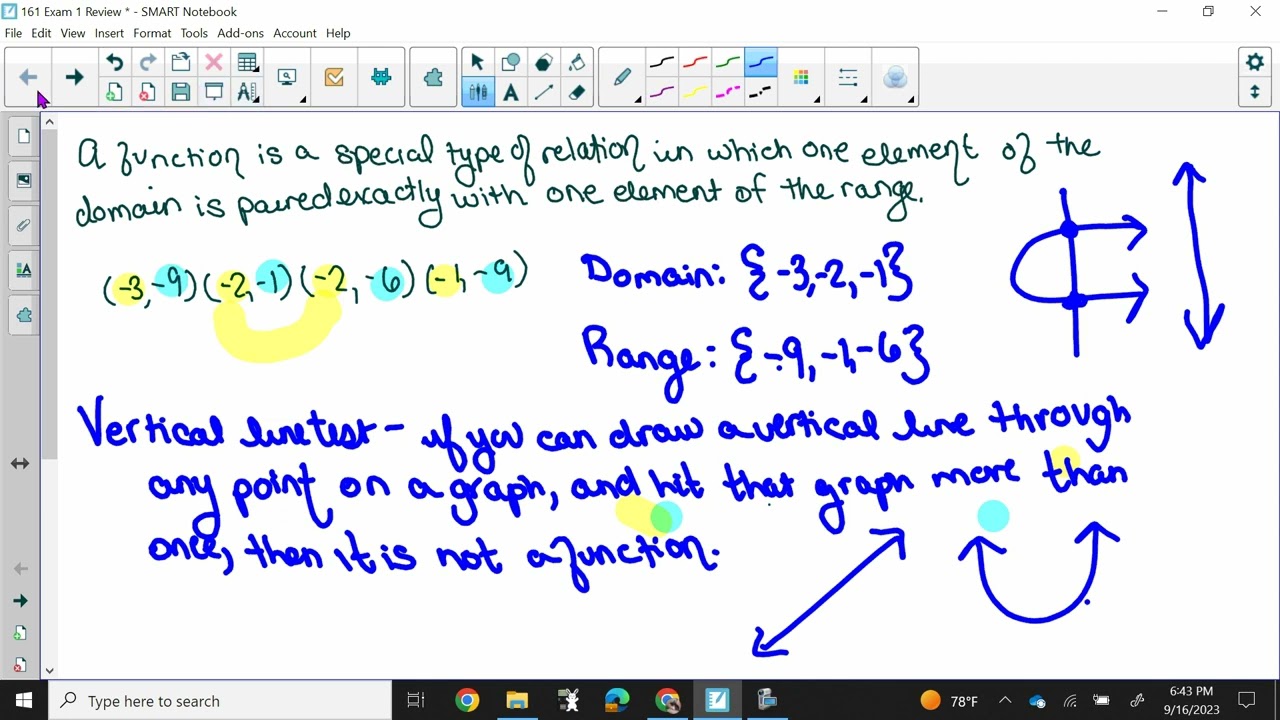 161 Exam 1 Review * - SMART Notebook
File Edit View Insert Format Tools Add-ons Account Help
A function is a special type of relation in which one element of the
domain is paired exactly with one element of the range.
(-3, -9) (-2, -1) (-2, -6) (-1, -9)
Domain: {-3, -2, -1}
Range: {-9, -1, -6}
Vertical line test - if you can draw a vertical line through
any point on a graph, and hit that graph more than
once, then it is not a function.
Type here to search
78°F
6:43 PM
9/16/2023